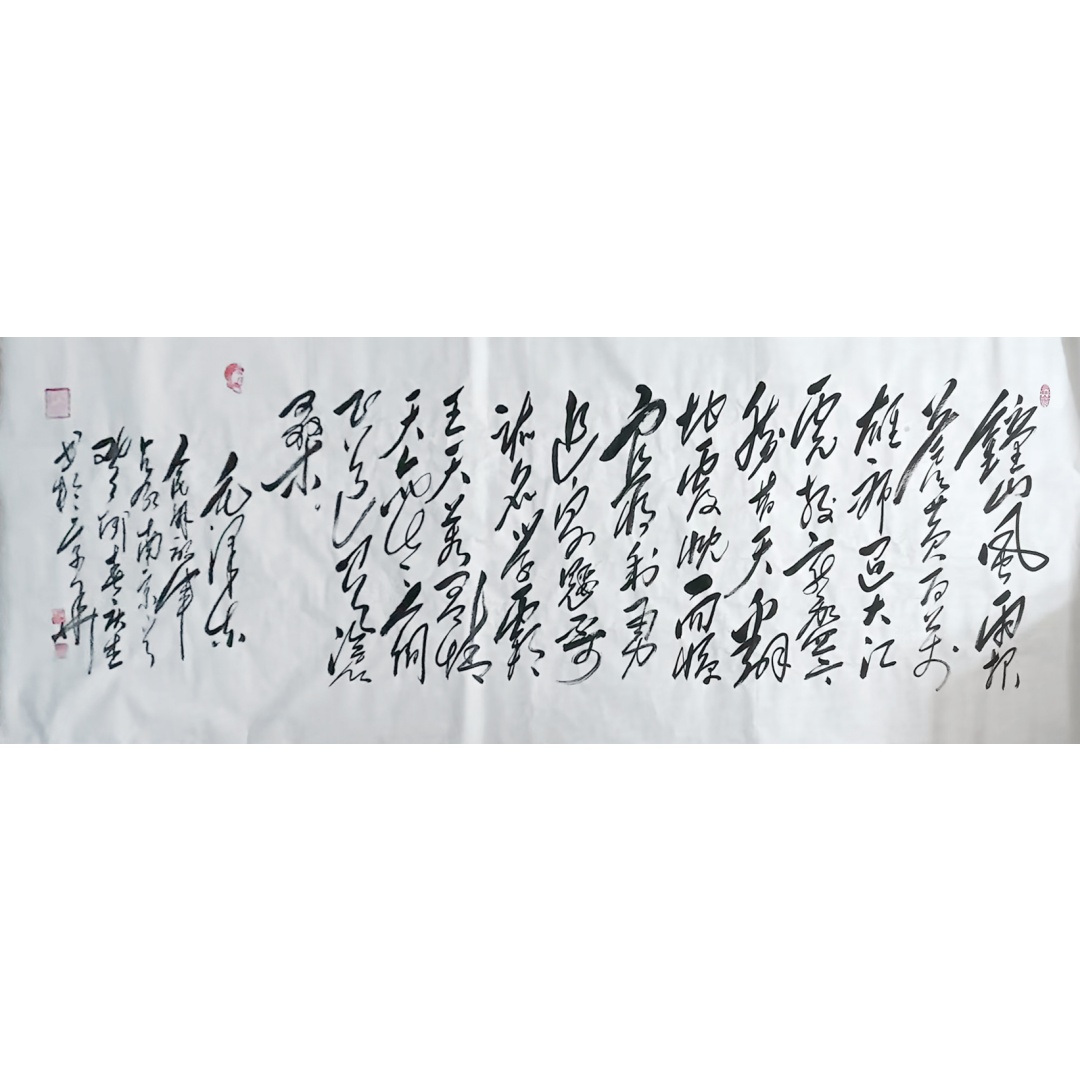 鐘山風雨起
蒼黃百萬
雄師過大江
虎踞龍盤今
勝昔天翻
地覆慨而慷
宜將剩勇
追窮寇不可
沽名學霸
王天若有情
天亦老人間
正道是滄
桑
毛澤東
人民解放軍
占領南京